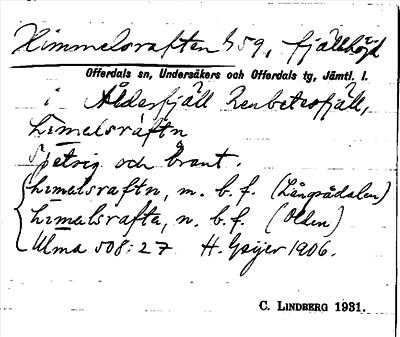 Himmelsraften h 59, fjällhöjd
Offerdals sn, Undersåkers och Offerdals tg, Jämtl. l.
i Ålderfjäll Renbetesfjäll,
Hímelsráftn
Spetsig och brant.
hímelsraftn, m. b. f. (Långsådalen)
hímelsrafta, n. b. f. (Olden)
Ulma 508:27 H. Geijer 1906.
C. LINDBERG 1931.